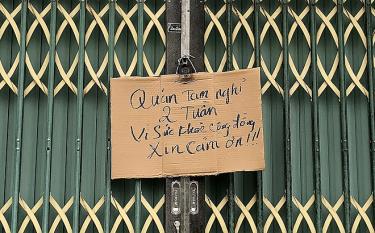 Quán Tạm nghỉ
2 Tuần
Vì Sức khoẻ cộng đồng
Xin Cảm ơn!!!